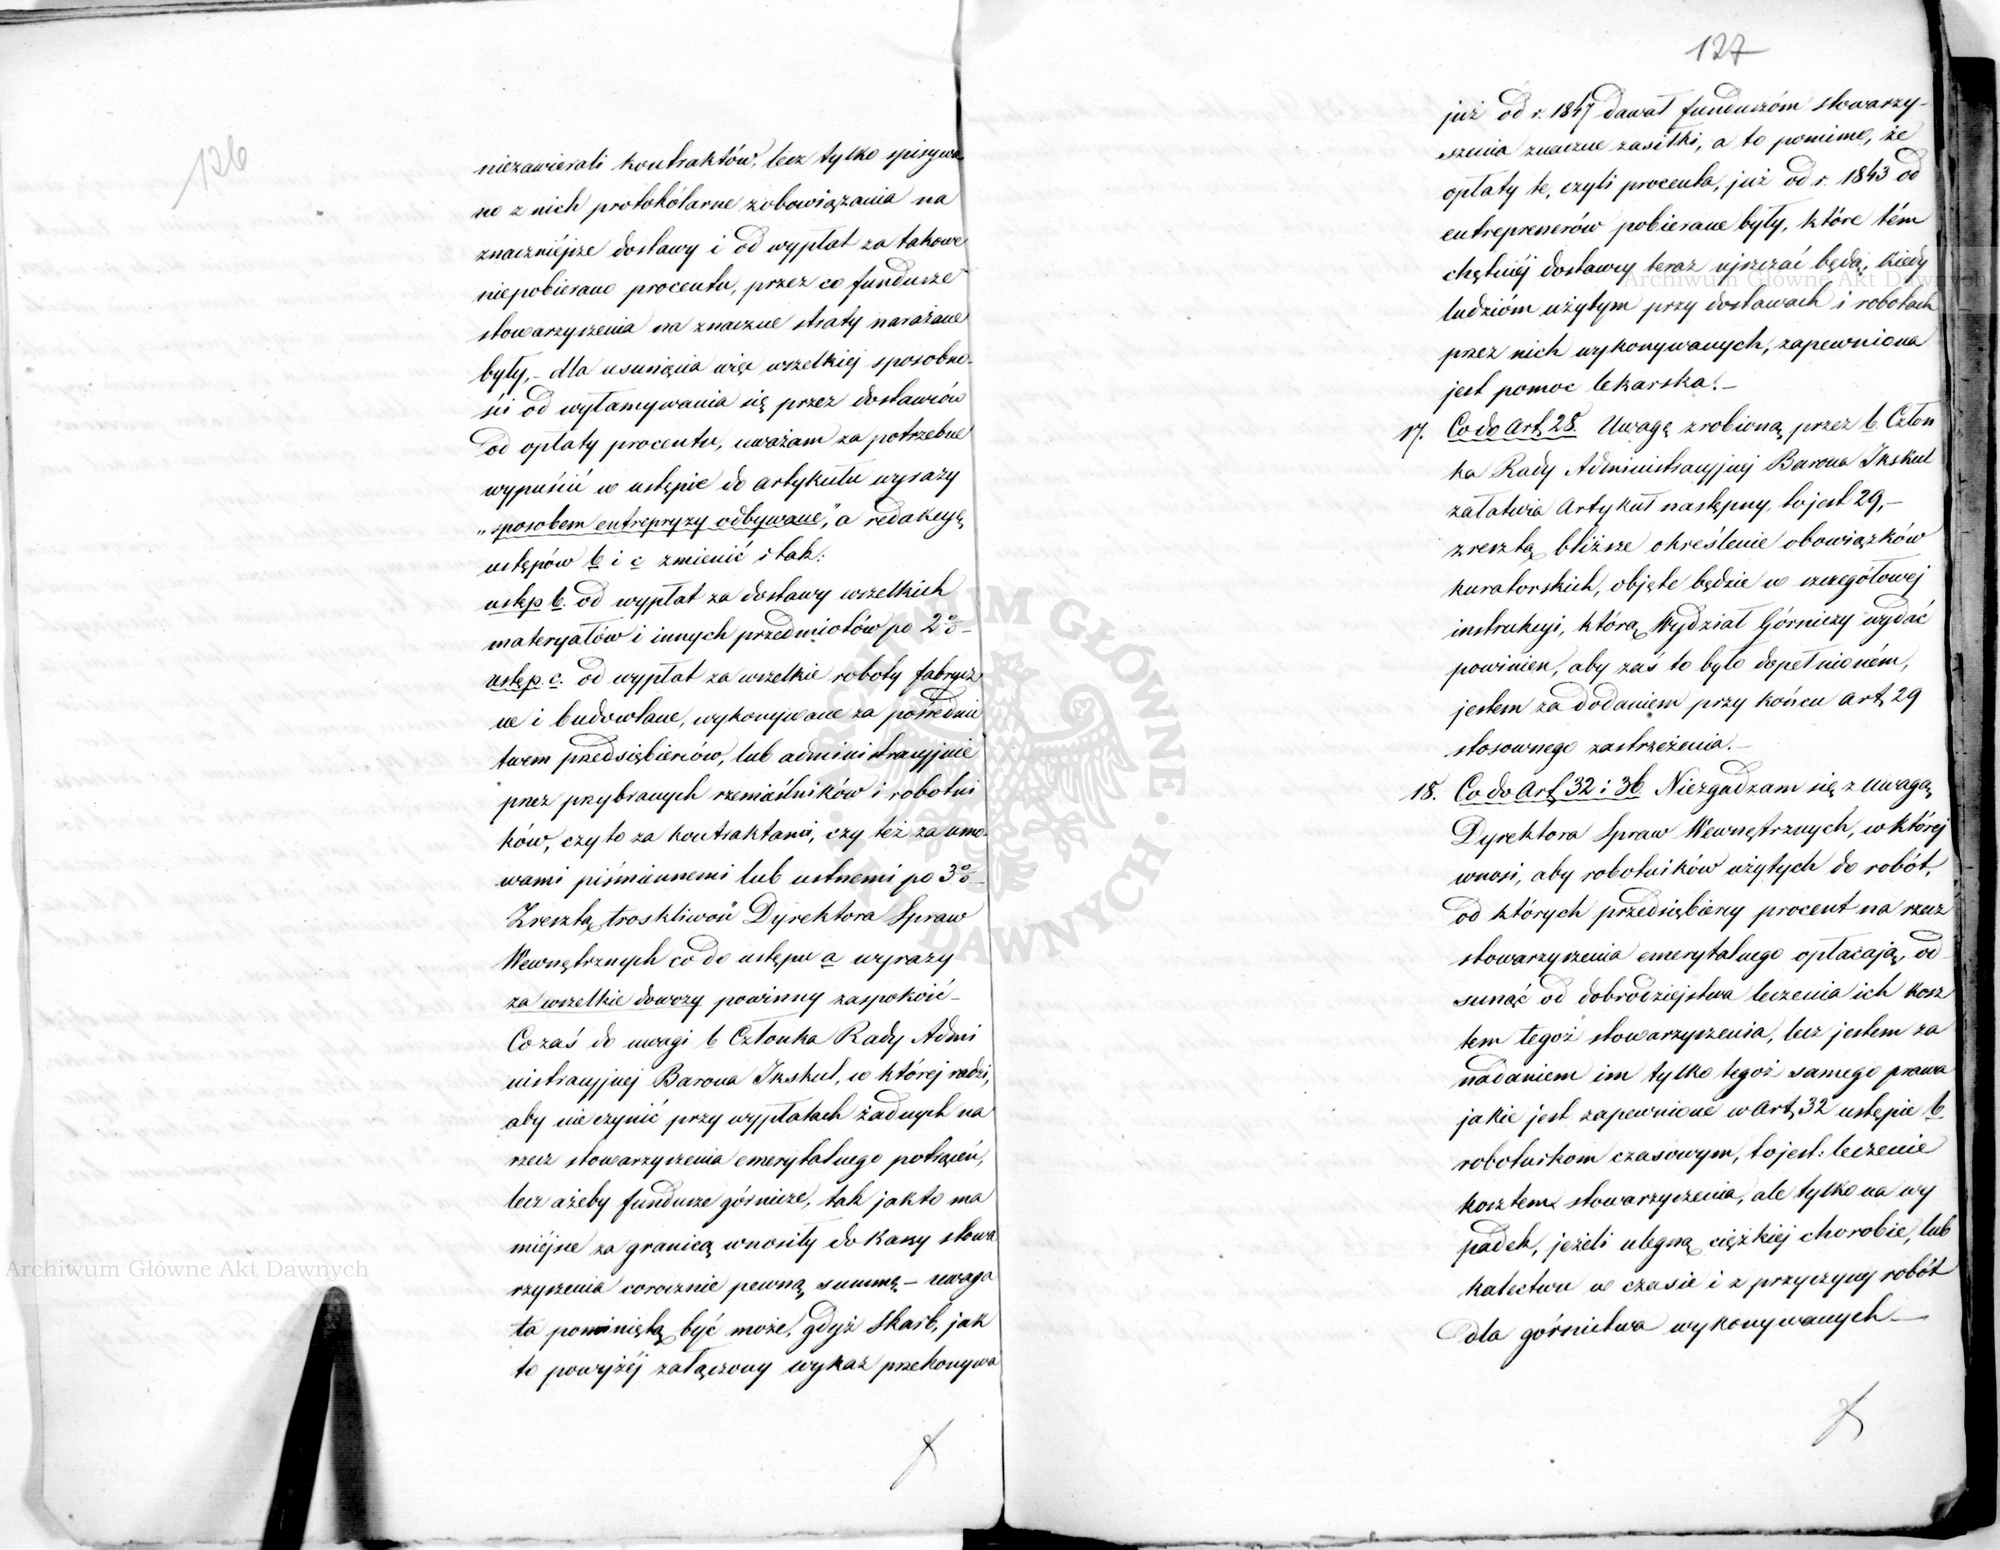 126
niezawierali kontraktów, lecz tylko spisywa
no z nich protokólarne zobowiązania na
znaczniejsze dostawy i od wypłat za takowe
niepobierano procentu, przez co fundusze
stowarzyszenia na znaczne straty narażane
były,- dla usunięcia więc wszelkiej sposobno-
ści od wyłamywania się przez dostawców
od opłaty procentu, uważam za potrzebne
wypuścić w ustępie do artykułu wyrazy
„sposobem entrepryzy odbywane", a redakcyę
ustępów b i c zmienić i tak:
ustęp b. od wypłat za dostawy wszelkich
materyałów i innych przedmiotów po 2% -
ustęp. c. od wypłat za wszelkie roboty fabrycz
ne i budowlane, wykonywane za pośredni
twem przedsiębierców, lub administracyjnie
przez przybranych rzemieślników i robotni
ków, czy to za kontraktami, czy też za umo-
wami piśmiennemi lub ustnemi po 3% -
Zresztą troskliwość Dyrektora Spraw
Wewnętrznych co do ustępu a wyrazy
za wszelkie dowozy powinny zaspokoić -
Co zaś do uwagi b Członka Rady Admi
nistracyjnej Barona Ikskul, w której radzi,
aby nie czynić przy wypłatach żadnych na
rzecz stowarzyszenia emerytalnego potrąceń,
lecz ażeby fundusze górnicze, tak jak to ma
miejsce za granicą wnosiły do kassy stowa
rzyszenia corocznie pewną summę - uwaga
ta pominiętą być może, gdyż Skarb, jak
to powyżéj załączony wykaz przekonywa
127
już od r. 1847 dawał funduszóm stowarzy-
szenia znaczne zasiłki, a to pomimo, że
opłaty te, czyli procenta, już od r. 1843 od
entreprenerów pobierane były, które tém
chętniéj dostawcy teraz ujszczać będą, kiedy
ludzióm użytym przy dostawach i robotach
przez nich wykonywanych, zapewniona
jest pomoc lekarska. -
17. Co do Art. 28. Uwagę zrobioną przez b. Człon
ka Rady Administracyjnej Barona Ikskul
załatwia Artykuł następny, to jest 29,-
zresztą bliższe określenie obowiązków
kuratorskich, objęte będzie w szczegółowej
instrukcyi, którą Wydział Górniczy wydać
powinien, aby zaś to było dopełnioném,
jestem za dodaniem przy końcu art. 29
stosownego zastrzeżenia. -
18. Co do Art. 32 i 36. Niezgadzam się z uwagą
Dyrektora Spraw Wewnętrznych, w której
wnosi, aby robotników użytych do robót,
od których przedsiębiercy procent na rzecz
stowarzyszenia emerytalnego opłacają, od-
sunąć od dobrodziejstwa leczenia ich kosz
tem tegoż stowarzyszenia, lecz jestem za
nadaniem im tylko tegoż samego prawa
jakie jest zapewnione w Art. 32 ustępie b.
robotnikom czasowym, to jest: leczenie
kosztem stowarzyszenia, ale tylko na wy
padek, jeżeli ulegną ciężkiej chorobie, lub
kalectwu w czasie i z przyczyny robót
dla górnictwa wykonywanych -
Archiwum Główne Akt Dawnych
Archiwum Główne Akt Dawnych
ARCHIWUM GŁÓWNE AKT DAWNYCH